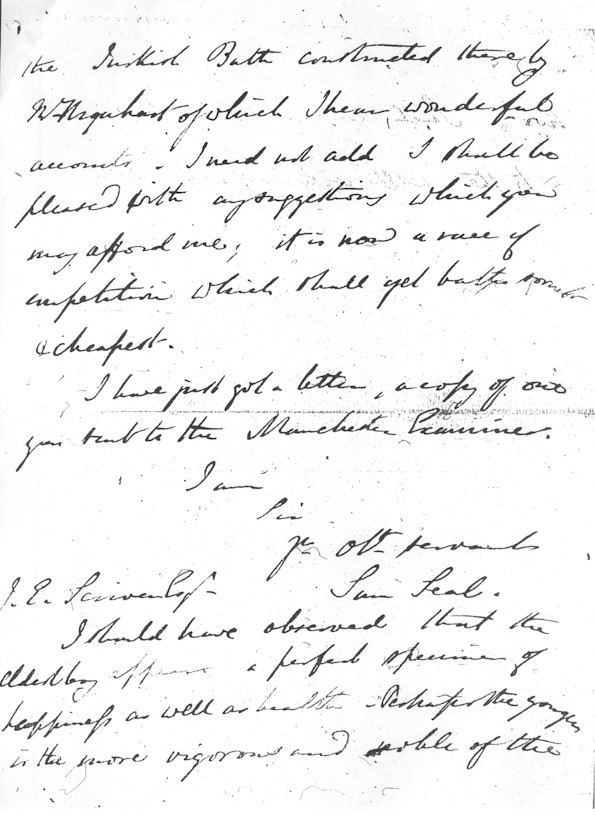 the Turkish Bath constructed there by
Mr Urquhart of which I hear wonderful
accounts. I need not add I shall be
pleased with any suggestions which you
may afford me; it is now a race of
competition which shall get baths
& cheapest.
I have just got a letter, a copy of one
you sent to the Manchester Examiner.
I am
Sir
yr obt servant
J. E. Scriven Esqr
Sam Seal.
I should have observed that the
eldest boy appears a perfect specimen of
happiness as well as health - Perhaps the younger
is the more vigorous and noble of the